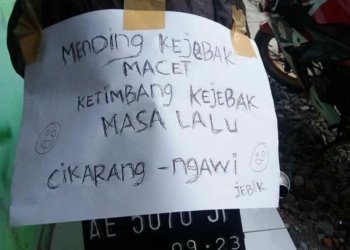 MENDING KEJEBAK
MACET
KETIMBANG KEJEBAK
MASA LALU
CIKARANG - NGAWI
JEBIK
AE 5070 JI
09·23